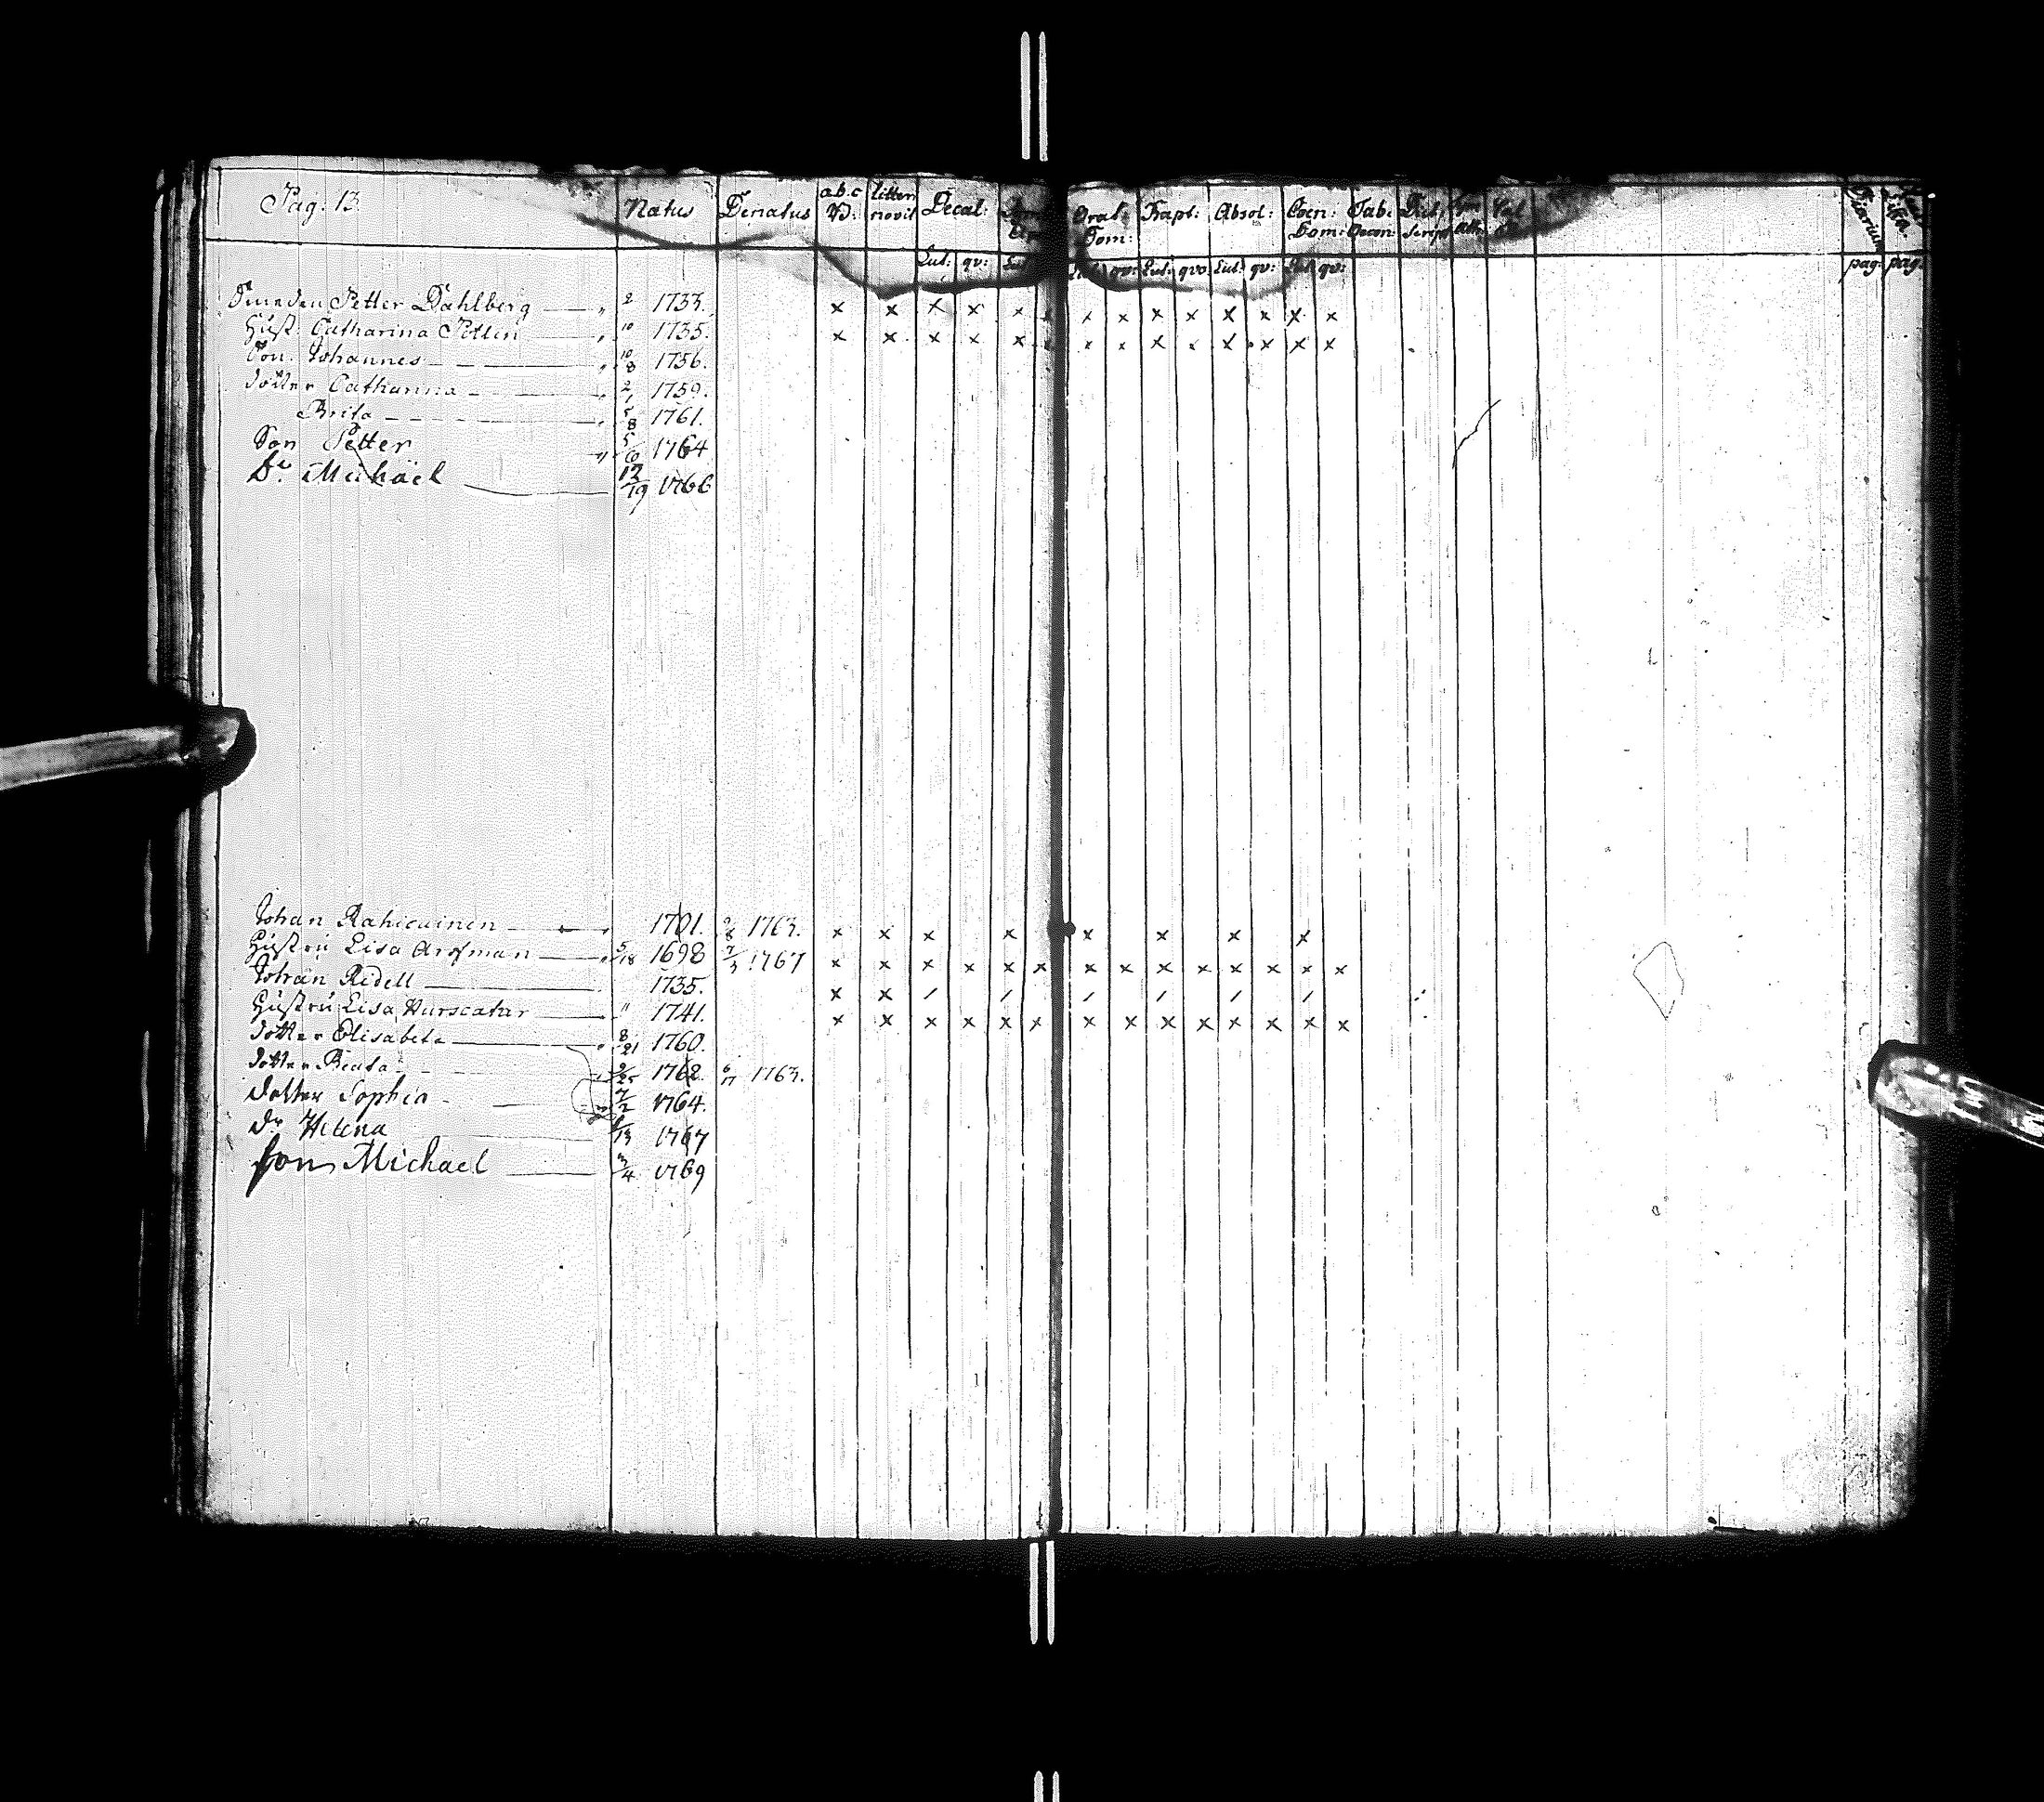 Pag. 13. Natus Denatus abc litter: novit Decal: Orat: Dom: Bapt: Absol: Coen: Dom: Tab: Oecon:
Lut: qv: Lut: qv: Lut: qvo: Lut: qv: Lut: qv: pag: pag:
Smeden Petter Dahlberg 2 1733. x x x x x x x x x x x x x
Hust: Catharina Pollin 10 1735. x x x x x x x x x x x x x
Son. Johannes 10/8 1756.
dotter Catharina 2/1 1759.
Brita 5/8 1761.
Son Petter 5/6 1764
Do Michael 12/19 1766
Johan Rahicainen 1701. 2/8 1763. x x x x x x x x
Hustru Lisa 5/18 1698 7/3 1767 x x x x x x x x x x x x x x
Johan Ridell 1735. x x / / / / / /
Hustru Lisa " 1741. x x x x x x x x x x x x x x
dotter Elisabeta 8/21 1760.
dotter Beata 2/25 1762 6/17 1763.
dotter Sophia 7/2 1764.
Dr Helena 1767
Son Michael 3/4 1769